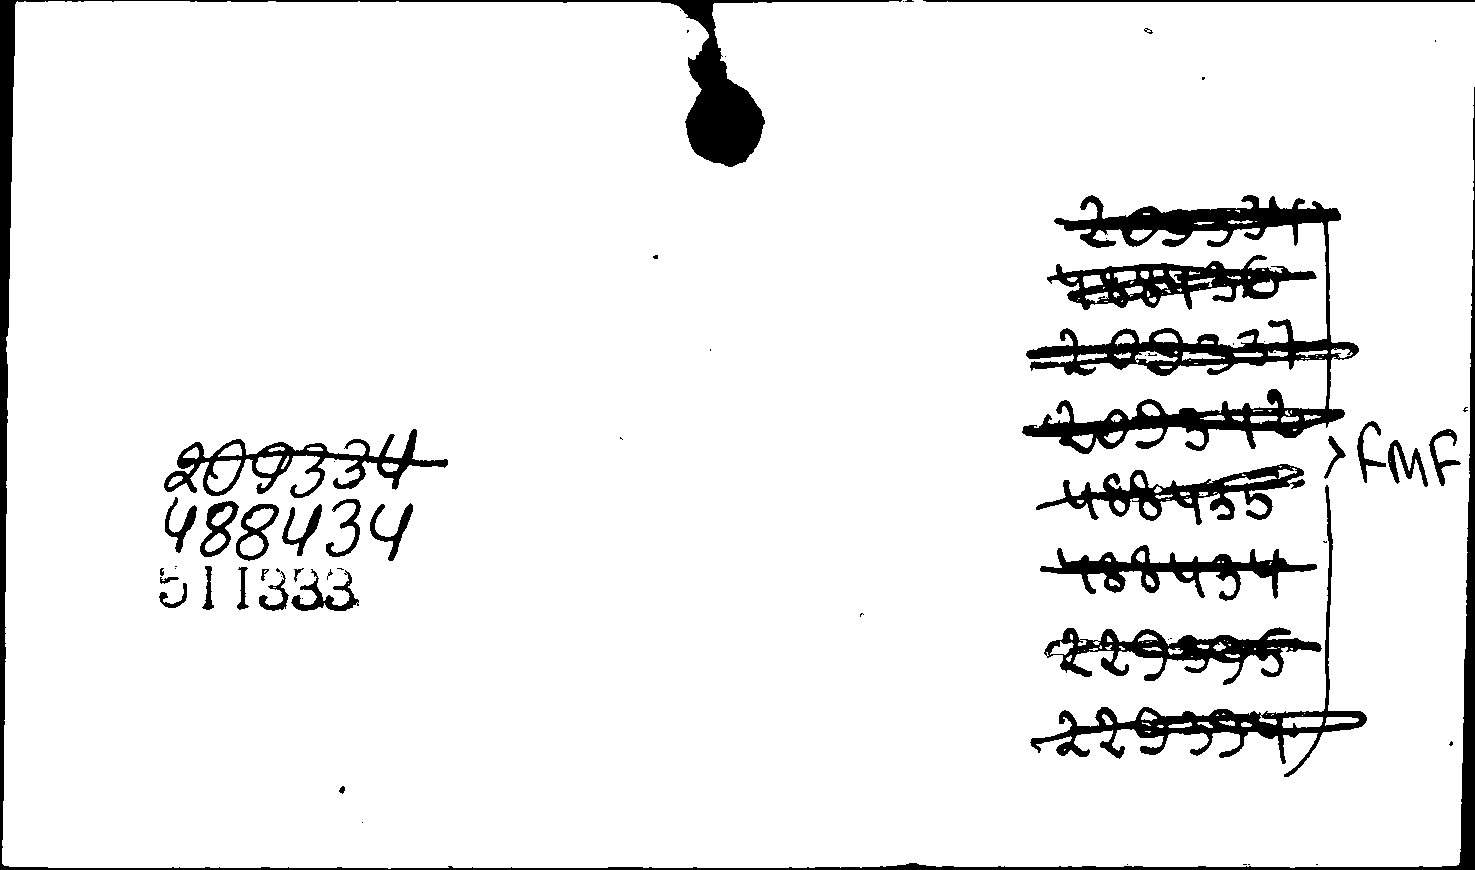 209334
488434
511333
209334
488436
209337
209342
488435
488434
229395
229394
FMF